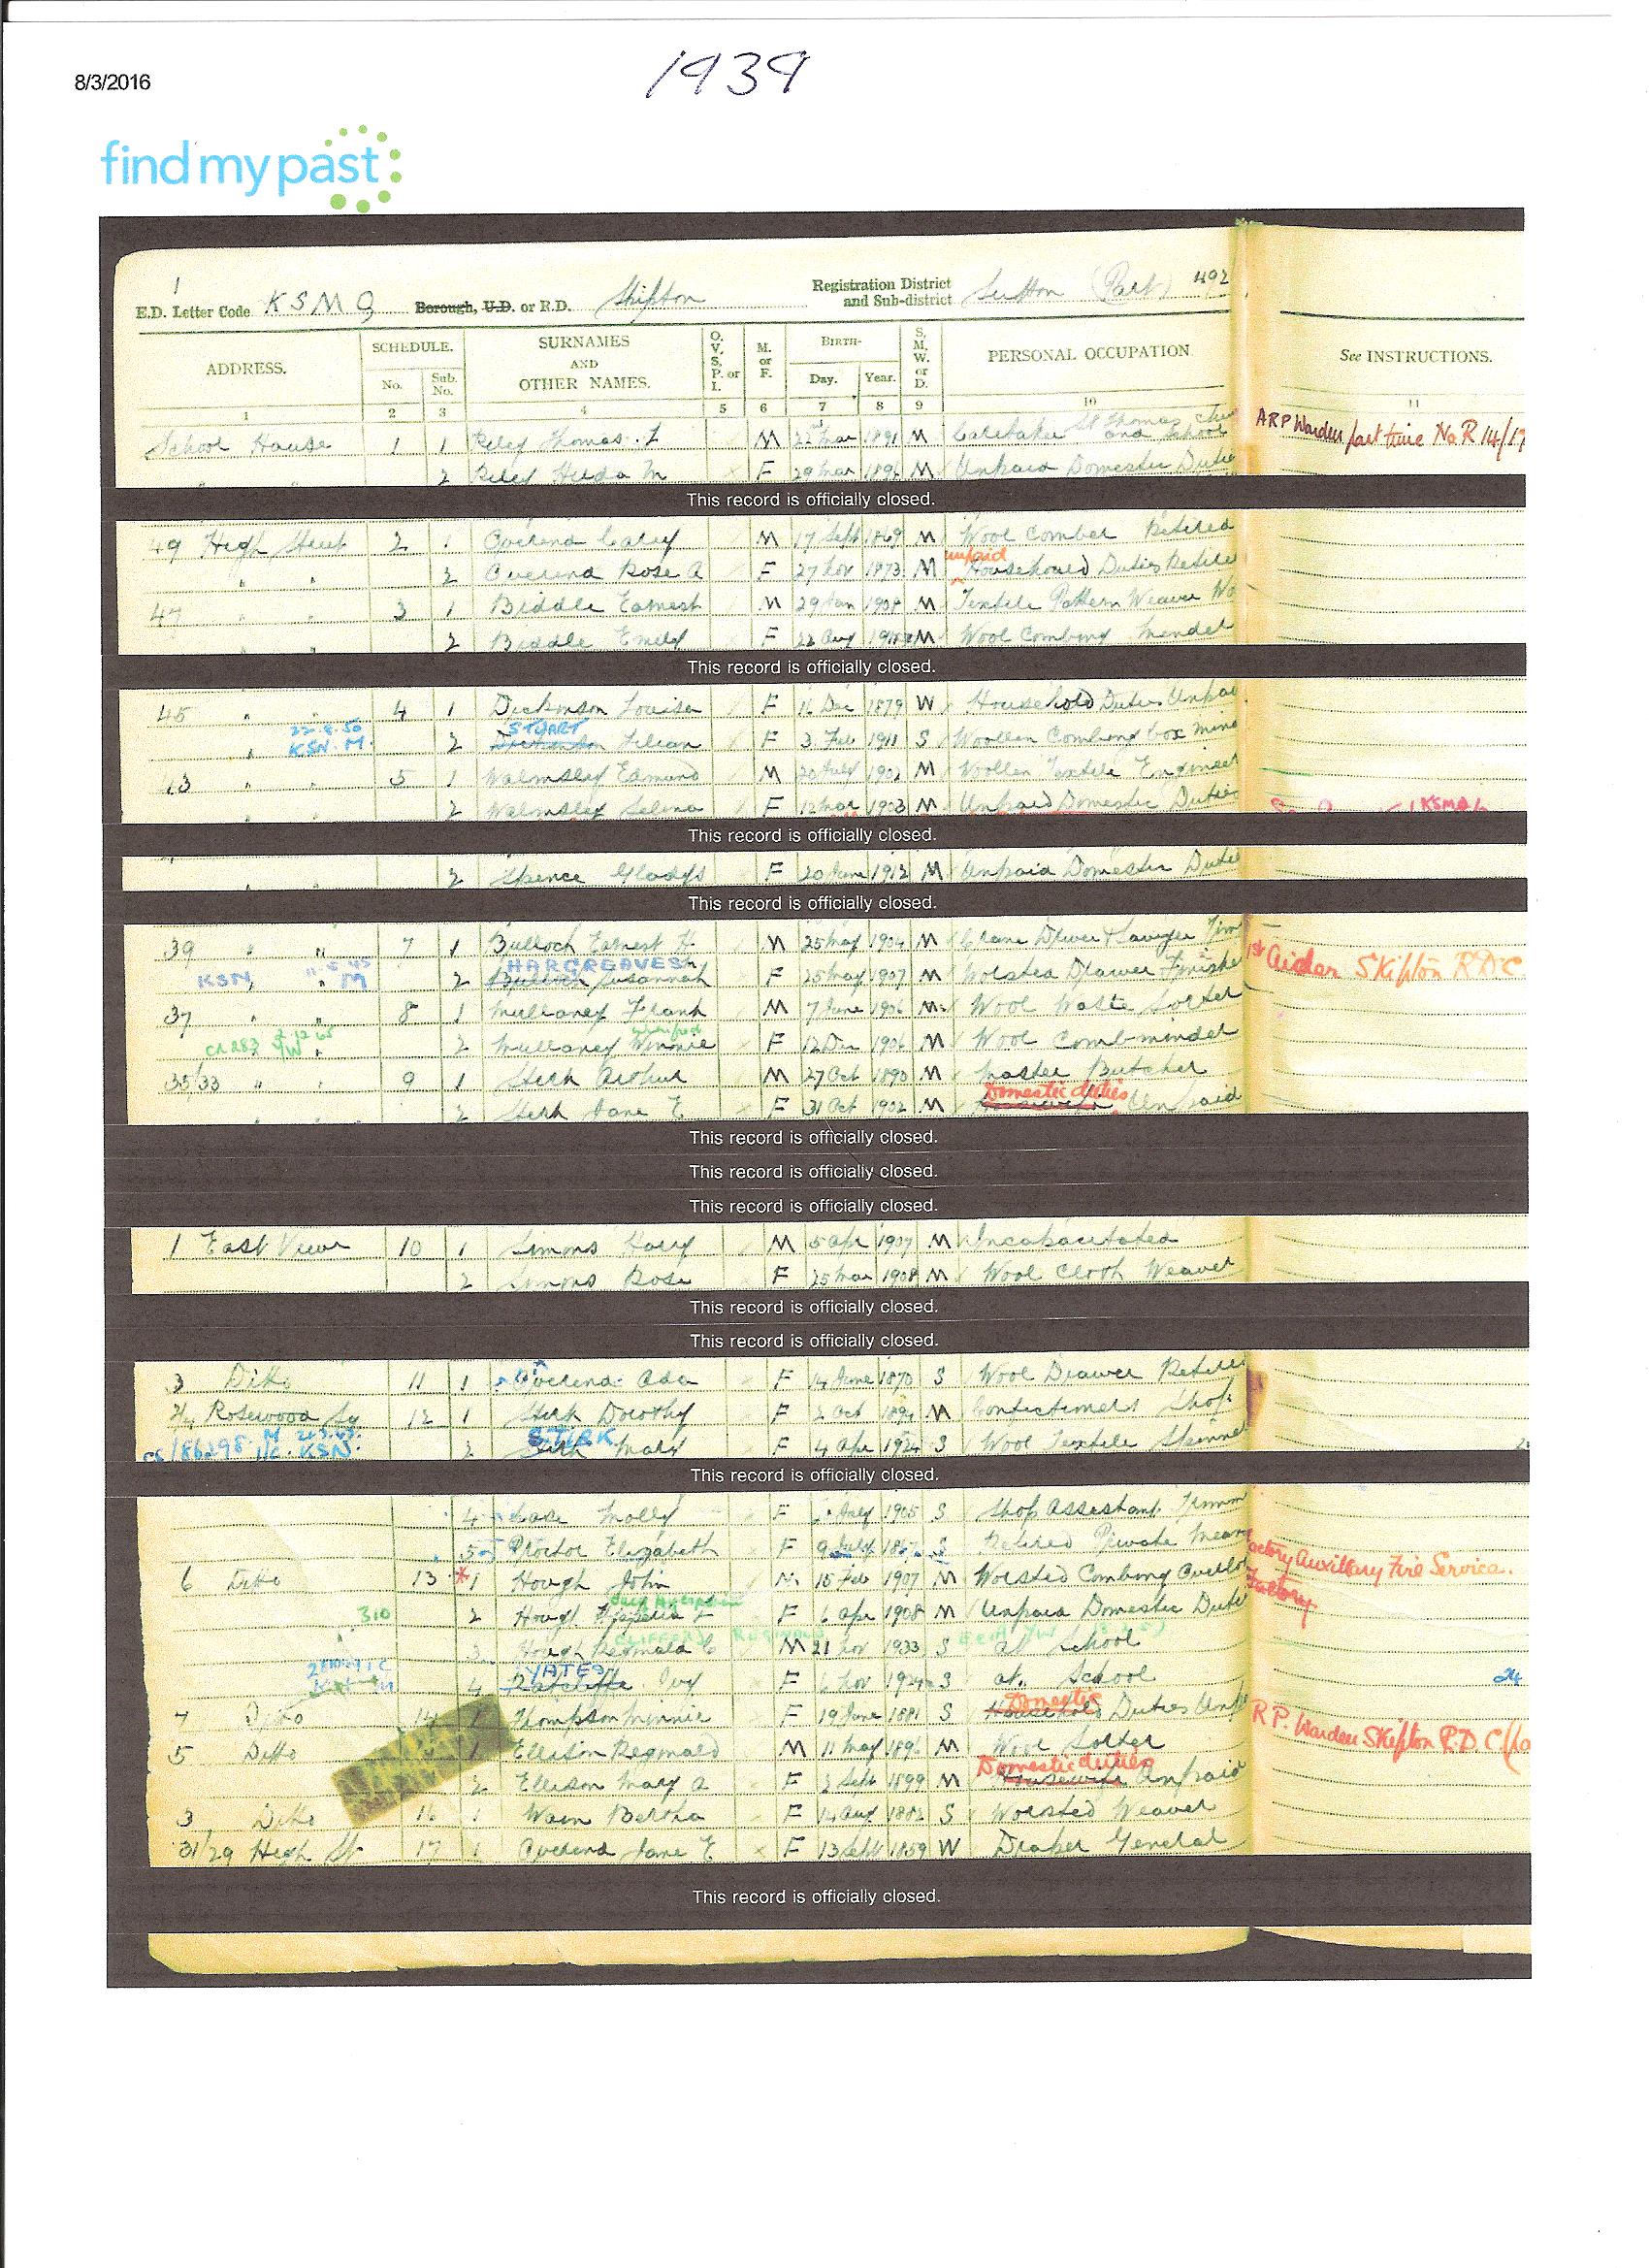 8/3/2016
1939
findmypast
1
E.D. Letter Code KSMQ Borough, U.D. or R.D. Skipton Registration District and Sub-district Sutton (Part) 492
ADDRESS. SCHEDULE. SURNAMES AND OTHER NAMES. O. V. S. P. or I. M. or F. BIRTH- S. M. W. or D. PERSONAL OCCUPATION See INSTRUCTIONS.
No. Sub. No. Day. Year.
1 2 3 4 5 6 7 8 9 10 11
School House 1 1 Riley Thomas. M 22 Mar 1891 M Caretaker St Thomas and School ARP Warden part time No R 14/17
2 Riley Hilda M F 29 Mar 1896 M Unpaid Domestic Dutie
This record is officially closed.
49 High Street 2 1 Overend Carey M 17 Sept 1869 M Wool Comber Retired
" " 2 Overend Rose A F 27 Nov 1873 M unpaid Household Duties Retire
47 " " 3 1 Biddle Earnest M 29 Jan 1908 M Textile Pattern Weaver Wo
" " 2 Biddle Emily F 22 Aug M Wool Combing Minder
This record is officially closed.
45 " " 4 1 Dickinson Louisa F 16 Dec 1879 W Household Duties Unpai
22.8.50 KSN. M. 2 Dickinson START Lilian F 3 Feb 1911 S Woollen Combing box mind
43 " " 5 1 Walmsley Edmund M 20 July 1902 M Woollen Textile Engineer
" " 2 Walmsley Selina F 12 Mar 1903 M Unpaid Domestic Duties
This record is officially closed.
" " 2 Spence Gladys F 20 June 1912 M Unpaid Domestic Dutie
This record is officially closed.
39 " " 7 1 Bulloch Earnest H. M 25 May 1904 M Crane Driver & Sawyer Tim
KSN M 2 Bulloch HARGREAVES Susannah F 25 May 1907 M Worsted Drawer Finishe 1st Aider Skipton R.D.C.
37 " " 8 1 Mullaney Frank M 7 June 1906 M Wool Waste Sorter
CR283 2 12 65 YW 2 Mullaney Winnie Winifred F 12 Dec 1906 M Wool Comb-minder
35/33 " " 9 1 Stirk Arthur M 27 Oct 1890 M Master Butcher
" " 2 Stirk Jane E F 31 Oct 1902 M Housewife Domestic duties Unpaid
This record is officially closed.
This record is officially closed.
This record is officially closed.
1 East View 10 1 Simons Harry M 5 Apr 1907 M Incapacitated
2 Simons Rose F 25 Mar 1908 M Wool Cloth Weaver
This record is officially closed.
This record is officially closed.
3 Ditto 11 1 Overend Ada F 14 June 1870 S Wool Drawer Retire
2/4 Rosewood Sq 12 1 Stirk Dorothy F 2 Oct M Confectioners Shop.
2 Stirk STIRK Mary F 4 Apr 1924 S Wool Textile Spinne
This record is officially closed.
4 Molly F July 1905 S Shop Assistant
5 Proctor Elizabeth F 9 July S Retired Private Mean
6 Ditto 13 *1 Hough John M 15 Feb 1907 M Worsted Combing Overlo actory Auxillary Fire Service. Factory.
310 2 Hough F 6 Apr 1908 M Unpaid Domestic Duti
3 Hough Reginald C CLIFFORD REGINALD M 21 Nov 1933 S at School
4 Ratcliffe YATES Ivy F 6 Nov S at School 24
7 Ditto 14 1 Thompson Minnie F 19 June 1881 S Household Domestic Duties Unp
5 Ditto 1 Ellison Reginald M 11 May 1896 M Wool Sorter R P. Warden Skipton R.D.C.
2 Ellison Mary A F 2 Sept 1899 M Housewife Domestic duties Unpaid
3 Ditto 16 1 Wain Bertha F 14 Aug 1882 S Worsted Weaver
31/29 High St 17 1 Overend Jane E F 13 Sept 1859 W Draper General
This record is officially closed.